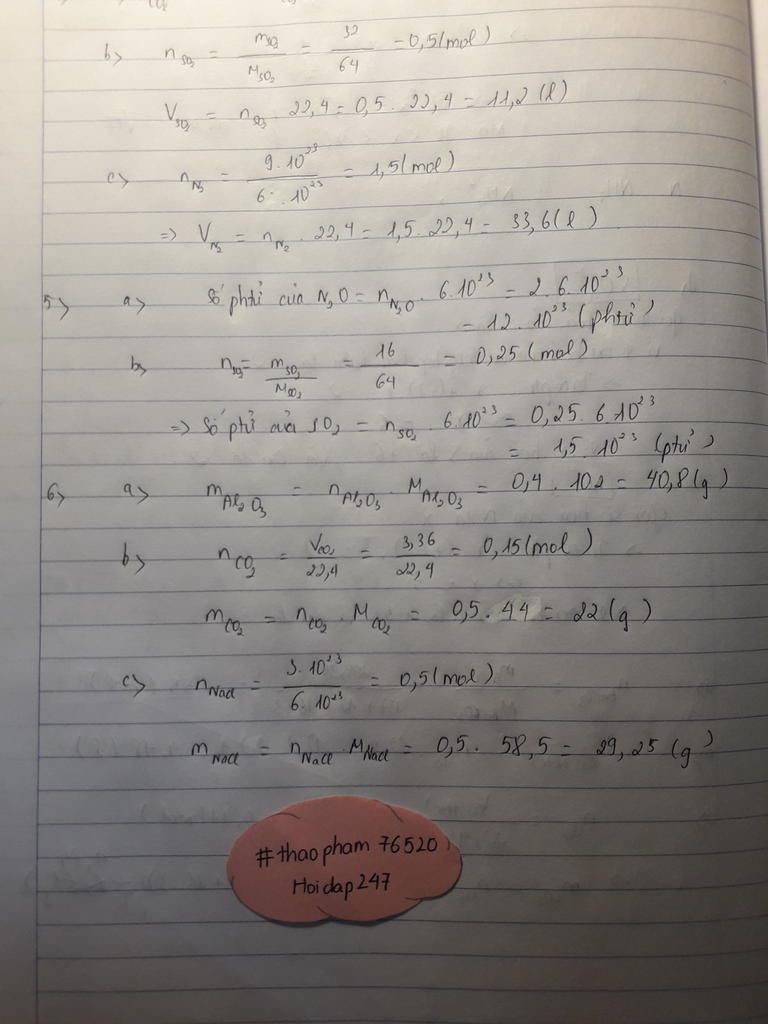 b> n SO₂ = m SO₂ / M SO₂ = 32 / 64 = 0,5 (mol)
V SO₂ = n SO₂ . 22,4 = 0,5 . 22,4 = 11,2 (l)
c> n N₂ = 9.10²³ / 6 . 10²³ = 1,5 (mol)
=> V N₂ = n N₂ . 22,4 = 1,5 . 22,4 = 33,6 (l)
5> a> Số phtử của N₂O = n N₂O . 6.10²³ = 2 . 6.10²³
= 12 . 10²³ (phtử)
b> n SO₂ = m SO₂ / M SO₂ = 16 / 64 = 0,25 (mol)
=> Số ptử của SO₂ = n SO₂ . 6.10²³ = 0,25 . 6.10²³
= 1,5 . 10²³ (ptử)
6> a> m Al₂O₃ = n Al₂O₃ . M Al₂O₃ = 0,4 . 102 = 40,8 (g)
b> n CO₂ = V CO₂ / 22,4 = 3,36 / 22,4 = 0,15 (mol)
m CO₂ = n CO₂ . M CO₂ = 0,5 . 44 = 22 (g)
c> n NaCl = 3.10²³ / 6.10²³ = 0,5 (mol)
m NaCl = n NaCl . M NaCl = 0,5 . 58,5 = 29,25 (g)
#thaopham76520
Hoidap247